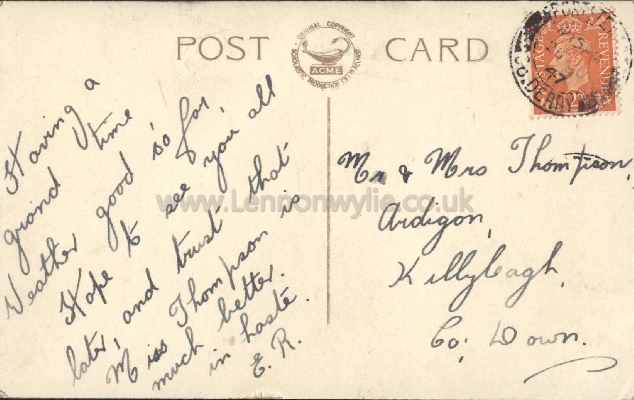 POST CARD
ORIGINAL COPYRIGHT
ACME
PORTSTEWART
47
CO. DERRY
POSTAGE REVENUE
Having a
grand time.
Weather good so far.
Hope to see you all
later, and trust that
Miss Thompson is
much better.
in haste.
E. R.
Mr & Mrs Thompson,
Ardigon,
Killyleagh,
Co; Down.
www.Lennonwylie.co.uk